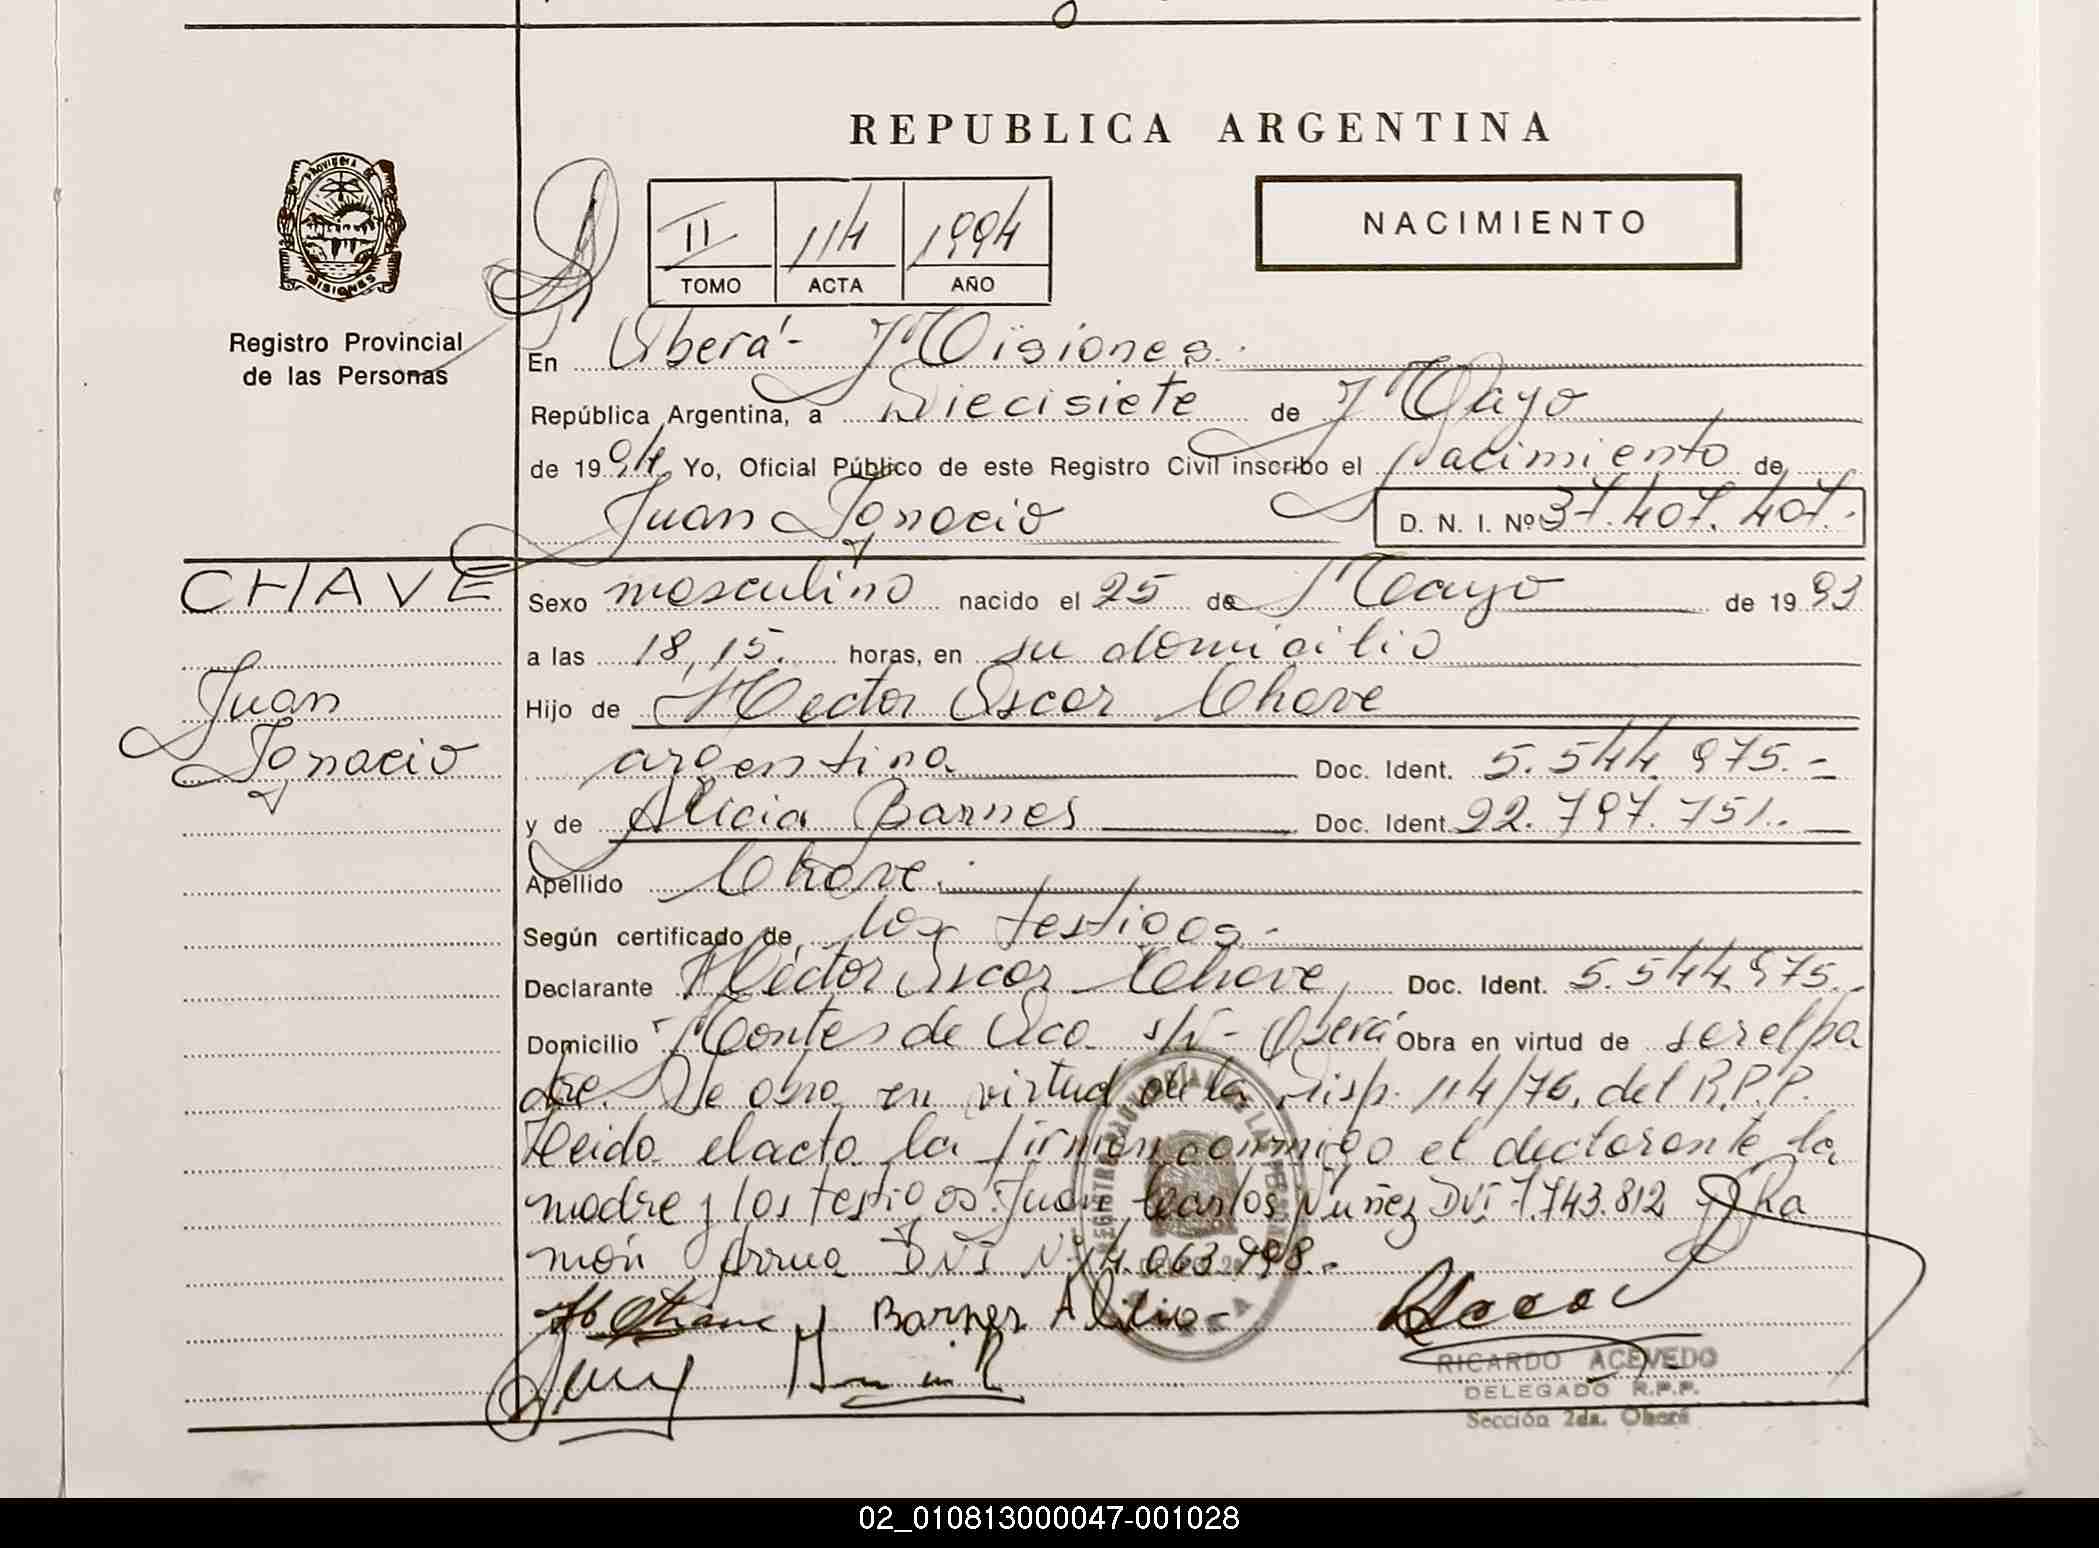 REPUBLICA ARGENTINA
PROVINCIA DE MISIONES
II 114 1994
TOMO ACTA AÑO
NACIMIENTO
Registro Provincial
de las Personas
En Oberá - Misiones.
República Argentina, a Diecisiete de Mayo
de 1994, Yo, Oficial Público de este Registro Civil inscribo el Nacimiento de
Juan Ignacio D. N. I. Nº 37.407.407.-
CHAVE
Juan
Ignacio
Sexo masculino nacido el 25 de Mayo de 1993
a las 18,15. horas, en su domicilio
Hijo de Hector Oscar Chave
argentina Doc. Ident. 5.544.975.-
y de Alicia Barnes Doc. Ident. 22.797.751.-
Apellido Chave.
Según certificado de los testigos.-
Declarante Héctor Oscar Chave, Doc. Ident. 5.544.975.-
Domicilio Montes de Oca s/N - Oberá Obra en virtud de ser el pa
dre. Se obra en virtud de la Disp. 114/76, del R.P.P.
Leida el acta la firman conmigo el declarante la
madre y los testigos: Juan Carlos Nuñez DNI 7.743.812 y Ra
món Arrua DNI Nº 14.063.798.-
Barnes Alicia
RICARDO ACEVEDO
DELEGADO R.P.P.
Sección 2da. Oberá
02_010813000047-001028